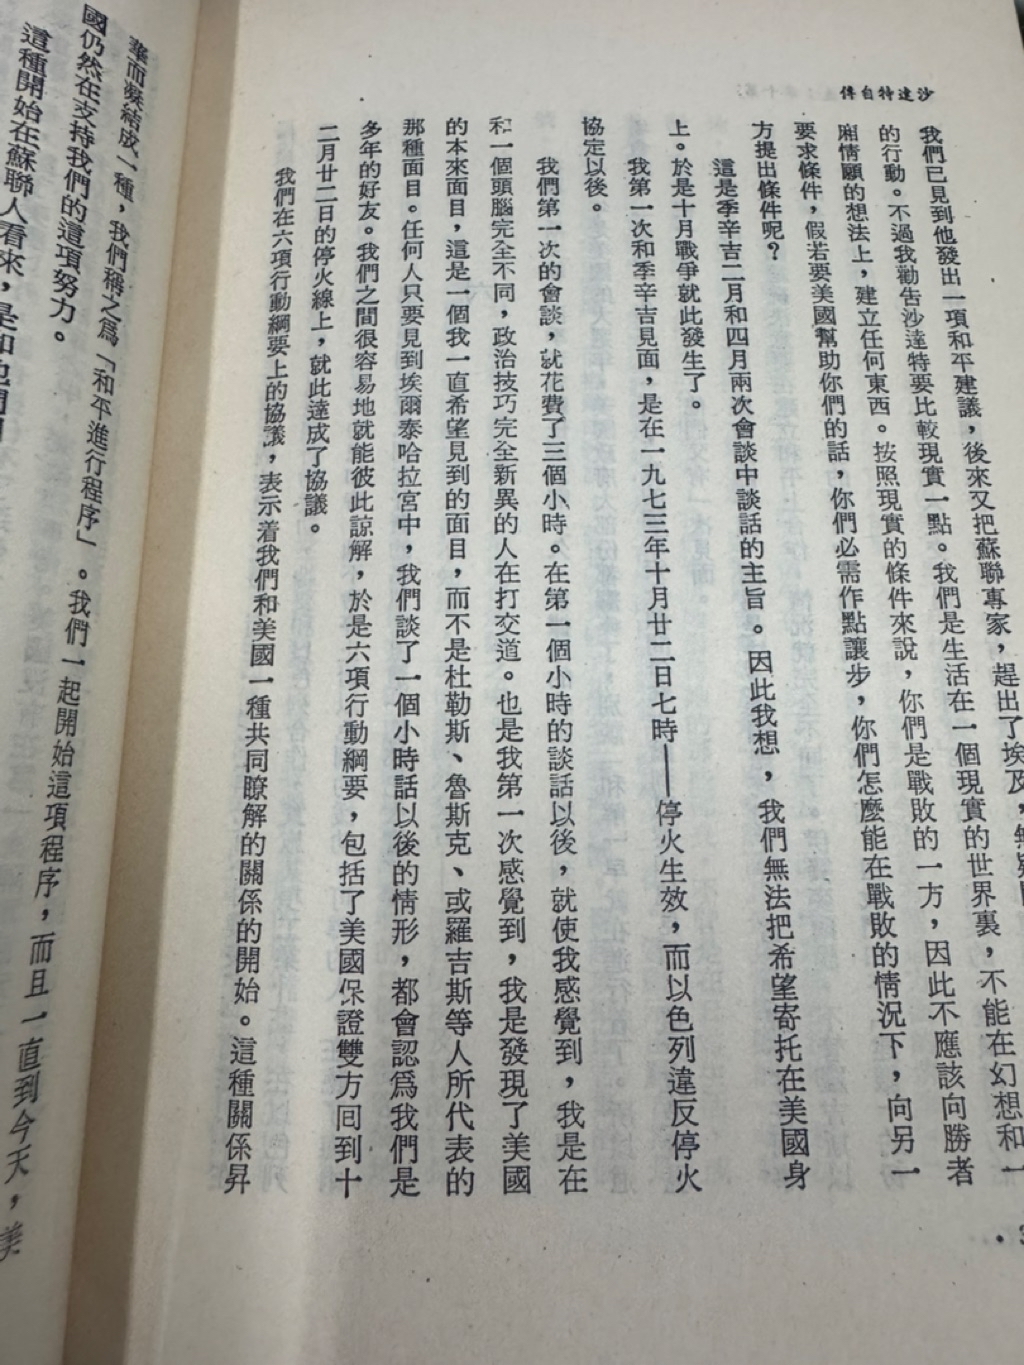 沙達特自傳
我們已見到他發出一項和平建議，後來又把蘇聯專家，趕出了埃及，無疑
的行動。不過我勸告沙達特要比較現實一點。我們是生活在一個現實的世界裏，不能在幻想和一
廂情願的想法上，建立任何東西。按照現實的條件來說，你們是戰敗的一方，因此不應該向勝者
要求條件，假若要美國幫助你們的話，你們必需作點讓步，你們怎麼能在戰敗的情況下，向另一
方提出條件呢？
這是季辛吉二月和四月兩次會談中談話的主旨。因此我想，我們無法把希望寄托在美國身
上。於是十月戰爭就此發生了。
我第一次和季辛吉見面，是在一九七三年十月廿二日七時——停火生效，而以色列違反停火
協定以後。
我們第一次的會談，就花費了三個小時。在第一個小時的談話以後，就使我感覺到，我是在
和一個頭腦完全不同，政治技巧完全新異的人在打交道。也是我第一次感覺到，我是發現了美國
的本來面目，這是一個我一直希望見到的面目，而不是杜勒斯、魯斯克、或羅吉斯等人所代表的
那種面目。任何人只要見到埃爾泰哈拉宮中，我們談了一個小時話以後的情形，都會認爲我們是
多年的好友。我們之間很容易地就能彼此諒解，於是六項行動綱要，包括了美國保證雙方囘到十
二月廿二日的停火線上，就此達成了協議。
我們在六項行動綱要上的協議，表示着我們和美國一種共同瞭解的關係的開始。這種關係昇
華而凝結成一種，我們稱之爲「和平進行程序」。我們一起開始這項程序，而且一直到今天，美
國仍然在支持我們的這項努力。
這種開始在蘇聯人看來，是和他們